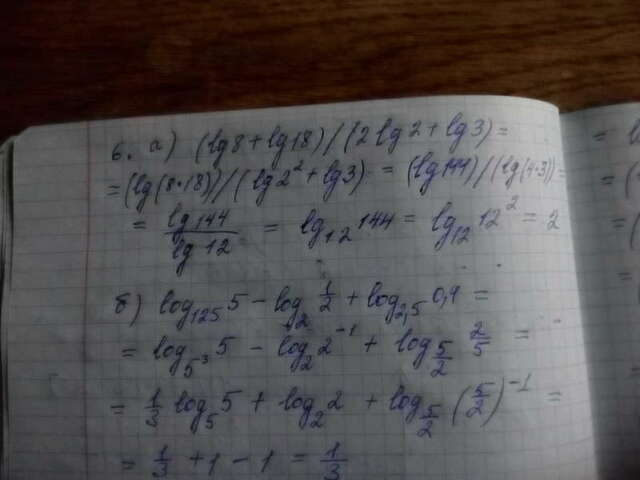 6. а) (lg8+lg18)/(2lg2+lg3)=
=(lg(8·18))/(lg2²+lg3) = (lg144)/(lg(4·3))=
= lg144/lg12 = lg₁₂144 = lg₁₂12² = 2
б) log₁₂₅5 - log₂ 1/2 + log₂,₅ 0,4 =
= log₅³5 - log₂2⁻¹ + log_{5/2} 2/5 =
= 1/3 log₅5 + log₂2 + log_{5/2} (5/2)⁻¹ =
= 1/3 + 1 - 1 = 1/3